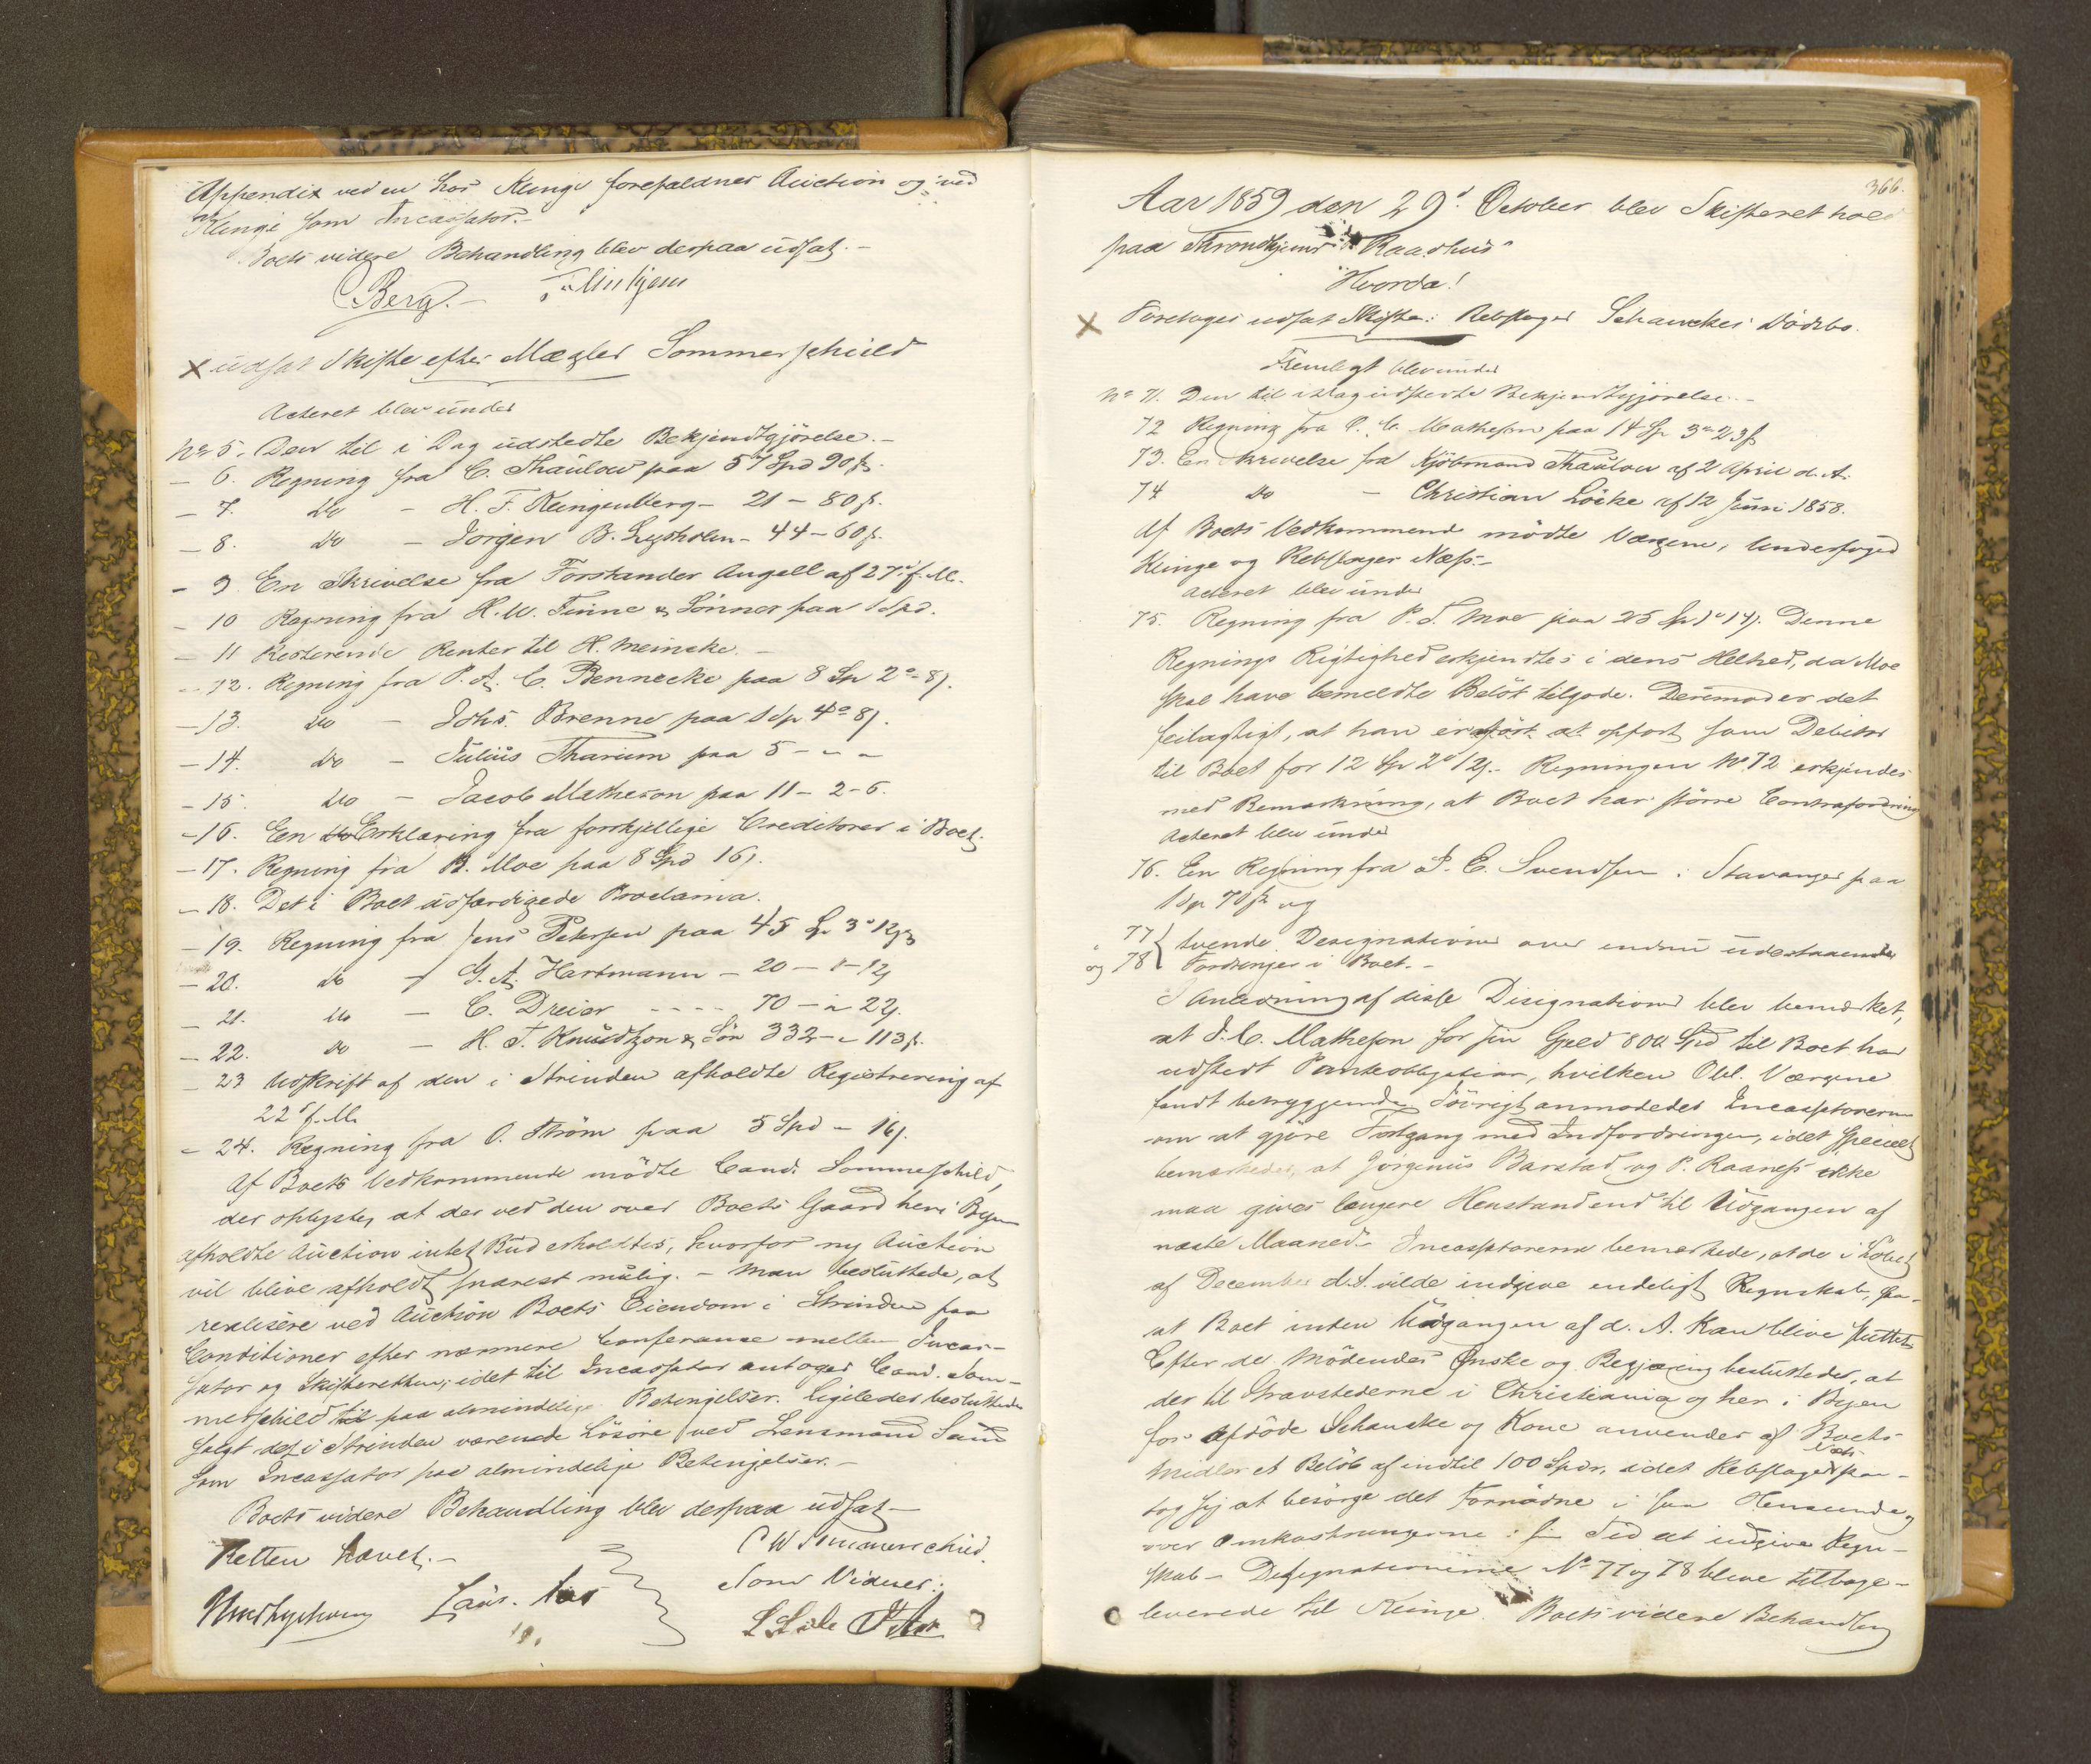 Appendix ved en hos Klinge forefaldnes Auction og ved
Klinge som Incassator.-
Boets videre Behandling blev derpaa udsat.-
CBerg.-
x udsat Skifte efter Mægler Sommerschield
Acteret blev under
No 5. Den til i Dag udstedte Bekjendtgjörelse.-
- 6. Regning fra C. Thaulow paa 57 Spd 90 ß.
- 7. do - H. F. Klingenberg - 21 - 80 ß.
- 8. do - Jörgen B. Lysholm - 44 - 60 ß.
- 9. En Skrivelse fra Forstander Angell af 27' f. M.
- 10 Regning fra H. M. Finne & Sönner paa 1 Spd.
- 11 Resterende Renter til H. Meincke.-
- 12. Regning fra P. A. C. Bennecke paa 8 Sp 2o 8ß.
- 13. do - Johs. Brenne paa 1 Sp 4o 8ß.
- 14. do - Julius Tharum paa 5 - " -
- 15. do - Jacob Matheson paa 11 - 2 - 6.
- 16. Een Erklæring fra forskjellige Creditorer i Boet.
- 17. Regning fra B. Moe paa 8 Spd 16ß.
- 18. Det i Boet udfærdigede Proclama.
- 19. Regning fra Jens Petersen paa 45 Sp 3o 12ß
- 20. do - G. A. Hartmann - 20 - 1 - 12ß
- 21. do - C. Dreier - - - - 70 - " 22ß.
- 22. do - H. T. Knudtzon & Sön 332 - " 113 ß.
- 23 Udskrift af den i Strinden afholdte Registrering af
22' f. M.
- 24. Regning fra O. Ström paa 5 Spd - 16ß.
Af Boets Vedkommende mödte Cand. Sommerschild,
der oplyste, at der ved den over Boets Gaard her i Byen
afholdte Auction intet Bud erholdtes, hvorfor ny Auction
vil blive afholdt snarest mulig. - Man besluttede, at
realisere ved Auction Boets Eiendom i Strinden paa
Conditioner efter nærmere Conferance mellem Incas-
sator og Skifteretten; idet til Incassator antoges Cand. Som-
merschield paa almindelige Betingelser. Ligeledes besluttedes
solgt det i Strinden værende Lösöre ved Lensmand Sand
som Incassator paa almindelige Betingelser.-
Boets videre Behandling blev derpaa udsat -
Retten hævet.-
C W Sommerschield.
Som Vidner:
366.
Aar 1859 den 29' October blev Skifteret hold
paa Throndhjems Raadhus
Hvorda!
x Foretoges udsat Skifte: Rebslager Schanckes Dödsbo.
Fremlagt blev under
No 71. Den til i Dag udstedte Bekjendtgjörelse.-
72 Regning fra Matheson paa 14 Sp 3o 23 ß
73. En Skrivelse fra Kjöbmand Thaulow af 2 April d. A.
74 do - Christian Löcke af 12 Juni 1858.
Af Boets Vedkommend mödte Værgene, Underfoged
Klinge og Rebslager Næss.-
Acteret blev under
75. Regning fra P. S. Moe paa 25 Sp 1o 14ß. Denne
Regnings Rigtighed erkjendtes i dens Helhed, da Moe
skal have bemeldte Belöb tilgode. Derimod er det
feilagtigt, at han er opfört som Debitor
til Boet for 12 Sp 2o 12ß.- Regningen No 72 erkjendes
med Bemærkning, at Boet har större Contrafordring
Acteret blev under
76. En Regning fra E. Svendsen i Stavanger paa
1 Sp 70 ß og
77
og 78 { tvende Designationer over endnu udestaaende
Fordringer i Boet.-
I Anledning af disse Designationer blev bemærket,
at J. C. Matheson for sin Gjeld 800 Spd til Boet har
udstedt Panteobligation, hvilken Obl. Værgene
fandt betryggende. Iövrigt anmodedes Incassatorerne
om at gjöre Fortgang med Indfordringen, idet specielt
bemærkedes, at Jörginus Barstad og P. Raanes ikke
maa gives længere Henstand end til Udgangen af
næste Maaned. Incassatorerne bemærkede, at de i Löbet
af December d. A. vilde indgive endeligt Regnskab, saa-
at Boet inden Udgangen af d. A. kan blive sluttet.
Efter de Mödendes Önske og Begjæring besluttedes, at
der til Gravstederne i Christiania og her i Byen
for afdöde Schancke og Kone anvendes af Boets
Midler et Belöb af indtil 100 Spdr, idet Rebslager Næss paa-
tog sig at besörge det Fornödne i saa Henseende og
over Omkostningerne i sin Tid at indgive Regn-
skab - Designationerne No 77 og 78 bleve tilbage-
leverede til Klinge. Boets videre Behandling